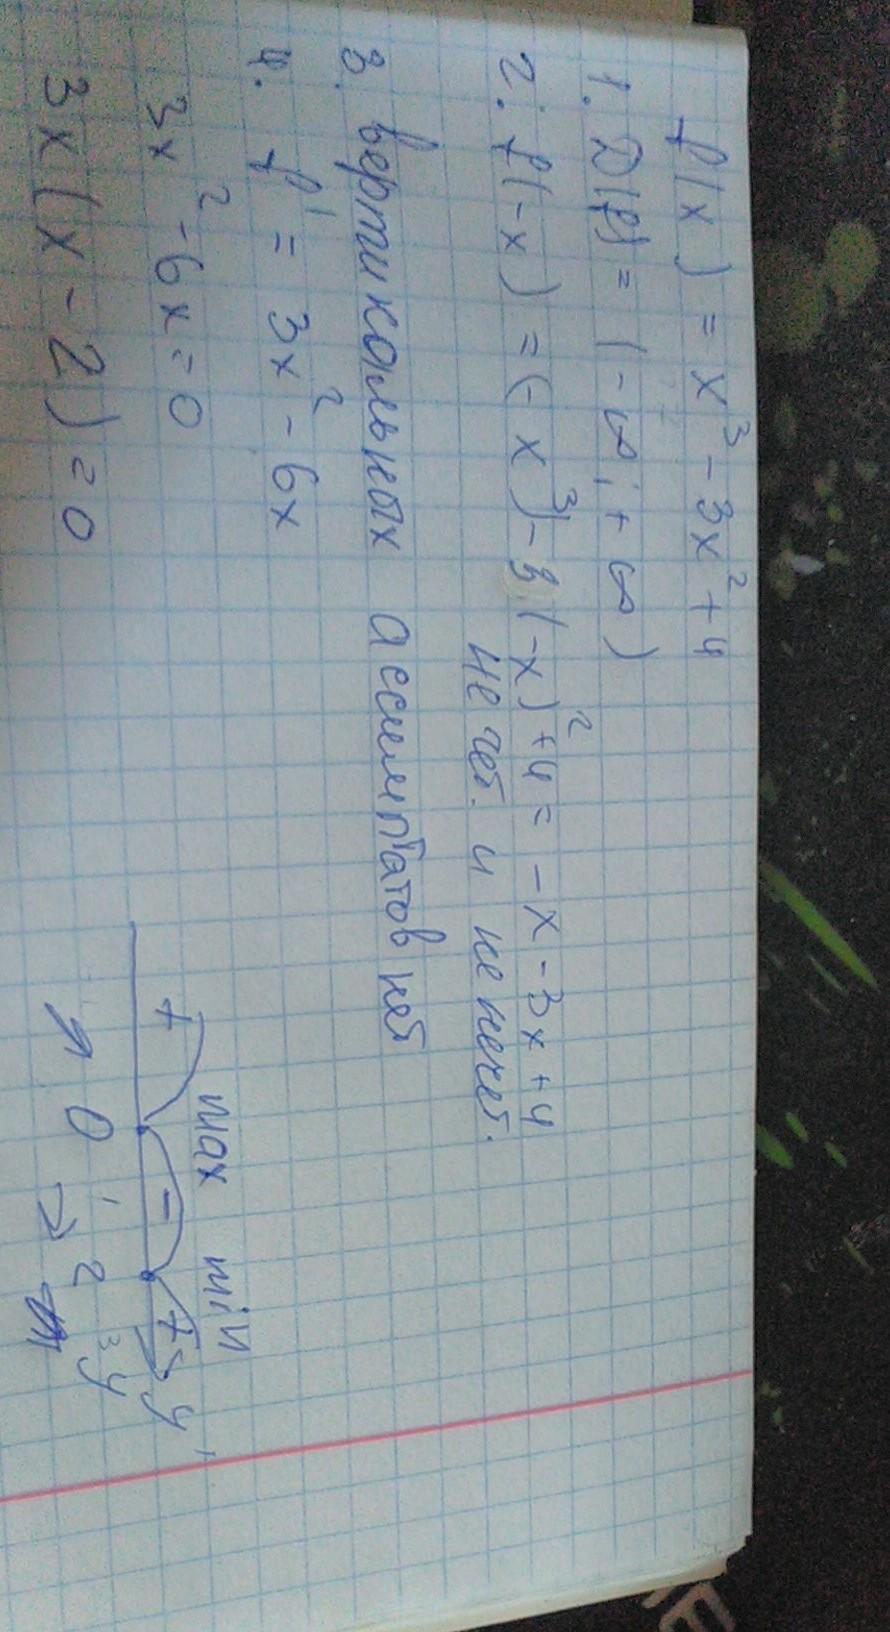 f(x) = x³ - 3x² + 4
1. D(f) = (-∞; +∞)
2. f(-x) = (-x)³ - 3(-x)² + 4 = -x - 3x + 4
не чет. и не нечет.
3. Вертикальных ассимптатов нет
4. f' = 3x² - 6x
3x² - 6x = 0
3x(x - 2) = 0
max min
+ - + y'
0 1 2 3 y